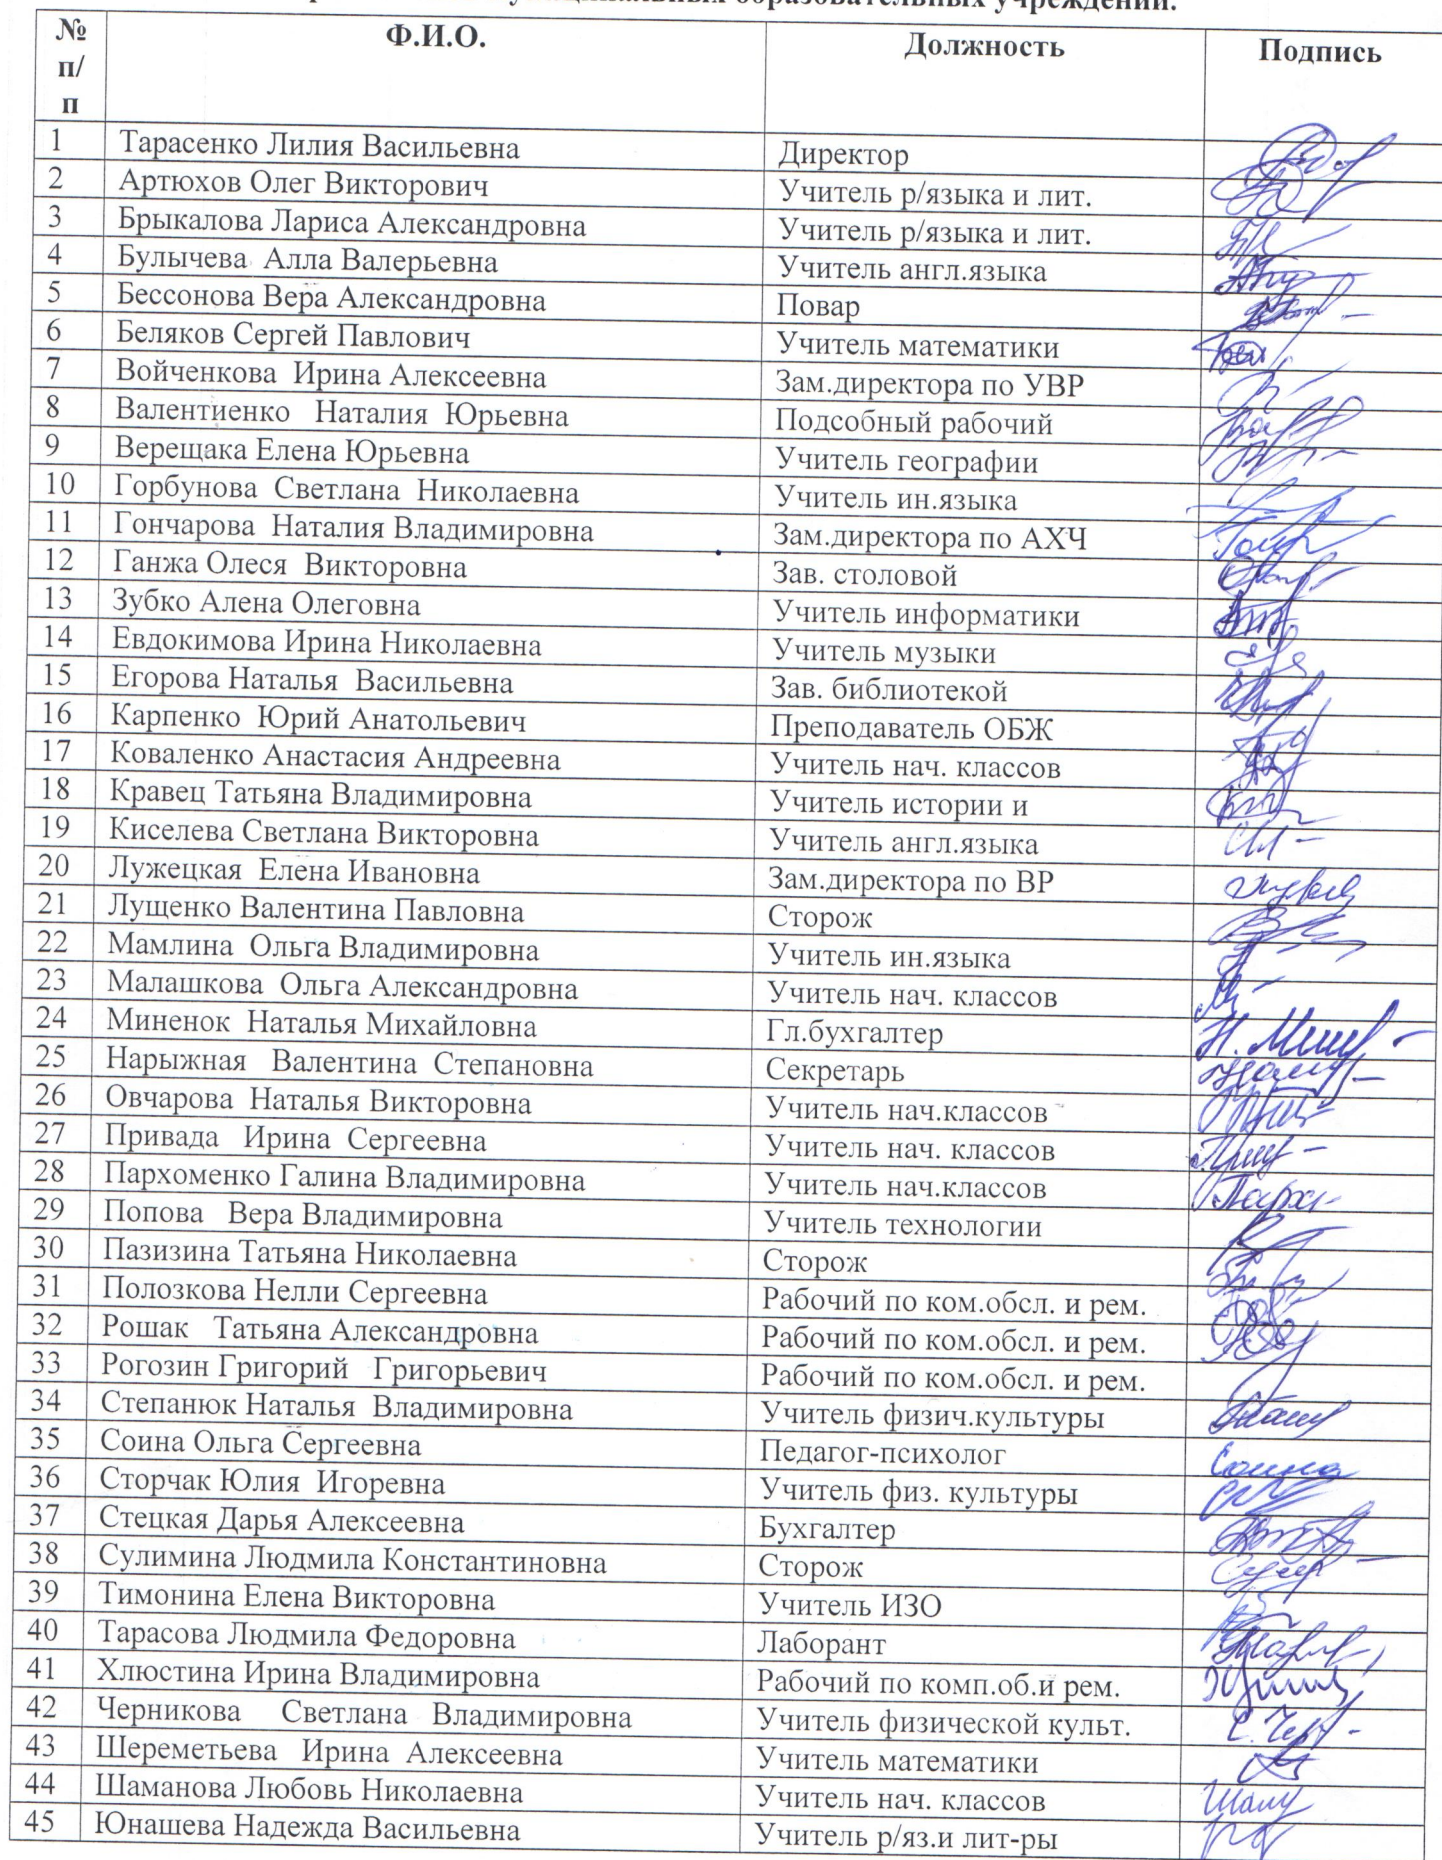 образовательных учреждений.
№ п/п Ф.И.О. Должность Подпись
1 Тарасенко Лилия Васильевна Директор
2 Артюхов Олег Викторович Учитель р/языка и лит.
3 Брыкалова Лариса Александровна Учитель р/языка и лит.
4 Булычева Алла Валерьевна Учитель англ.языка
5 Бессонова Вера Александровна Повар
6 Беляков Сергей Павлович Учитель математики
7 Войченкова Ирина Алексеевна Зам.директора по УВР
8 Валентиенко Наталия Юрьевна Подсобный рабочий
9 Верещака Елена Юрьевна Учитель географии
10 Горбунова Светлана Николаевна Учитель ин.языка
11 Гончарова Наталия Владимировна Зам.директора по АХЧ
12 Ганжа Олеся Викторовна Зав. столовой
13 Зубко Алена Олеговна Учитель информатики
14 Евдокимова Ирина Николаевна Учитель музыки
15 Егорова Наталья Васильевна Зав. библиотекой
16 Карпенко Юрий Анатольевич Преподаватель ОБЖ
17 Коваленко Анастасия Андреевна Учитель нач. классов
18 Кравец Татьяна Владимировна Учитель истории и
19 Киселева Светлана Викторовна Учитель англ.языка
20 Лужецкая Елена Ивановна Зам.директора по ВР
21 Лущенко Валентина Павловна Сторож
22 Мамлина Ольга Владимировна Учитель ин.языка
23 Малашкова Ольга Александровна Учитель нач. классов
24 Миненок Наталья Михайловна Гл.бухгалтер
25 Нарыжная Валентина Степановна Секретарь
26 Овчарова Наталья Викторовна Учитель нач.классов
27 Привада Ирина Сергеевна Учитель нач. классов
28 Пархоменко Галина Владимировна Учитель нач.классов
29 Попова Вера Владимировна Учитель технологии
30 Пазизина Татьяна Николаевна Сторож
31 Полозкова Нелли Сергеевна Рабочий по ком.обсл. и рем.
32 Рошак Татьяна Александровна Рабочий по ком.обсл. и рем.
33 Рогозин Григорий Григорьевич Рабочий по ком.обсл. и рем.
34 Степанюк Наталья Владимировна Учитель физич.культуры
35 Соина Ольга Сергеевна Педагог-психолог Соина
36 Сторчак Юлия Игоревна Учитель физ. культуры
37 Стецкая Дарья Алексеевна Бухгалтер
38 Сулимина Людмила Константиновна Сторож
39 Тимонина Елена Викторовна Учитель ИЗО
40 Тарасова Людмила Федоровна Лаборант
41 Хлюстина Ирина Владимировна Рабочий по комп.об.и рем.
42 Черникова Светлана Владимировна Учитель физической культ.
43 Шереметьева Ирина Алексеевна Учитель математики
44 Шаманова Любовь Николаевна Учитель нач. классов
45 Юнашева Надежда Васильевна Учитель р/яз.и лит-ры